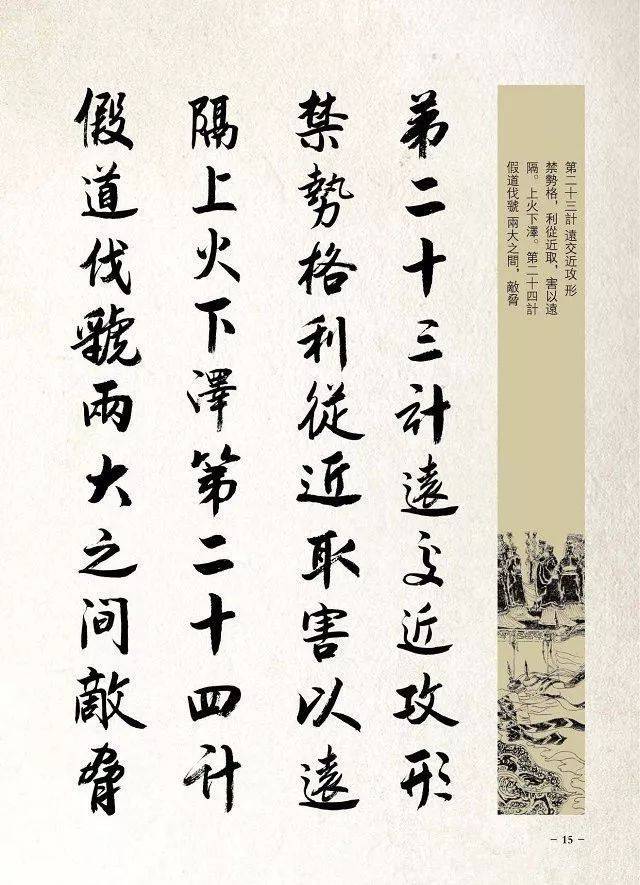 第二十三計 遠交近攻 形
禁勢格，利從近取，害以遠
隔。上火下澤。第二十四計
假道伐虢 兩大之間，敵脅
第二十三計遠交近攻形
禁勢格利從近取害以遠
隔上火下澤第二十四計
假道伐虢兩大之間敵脅
- 15 -